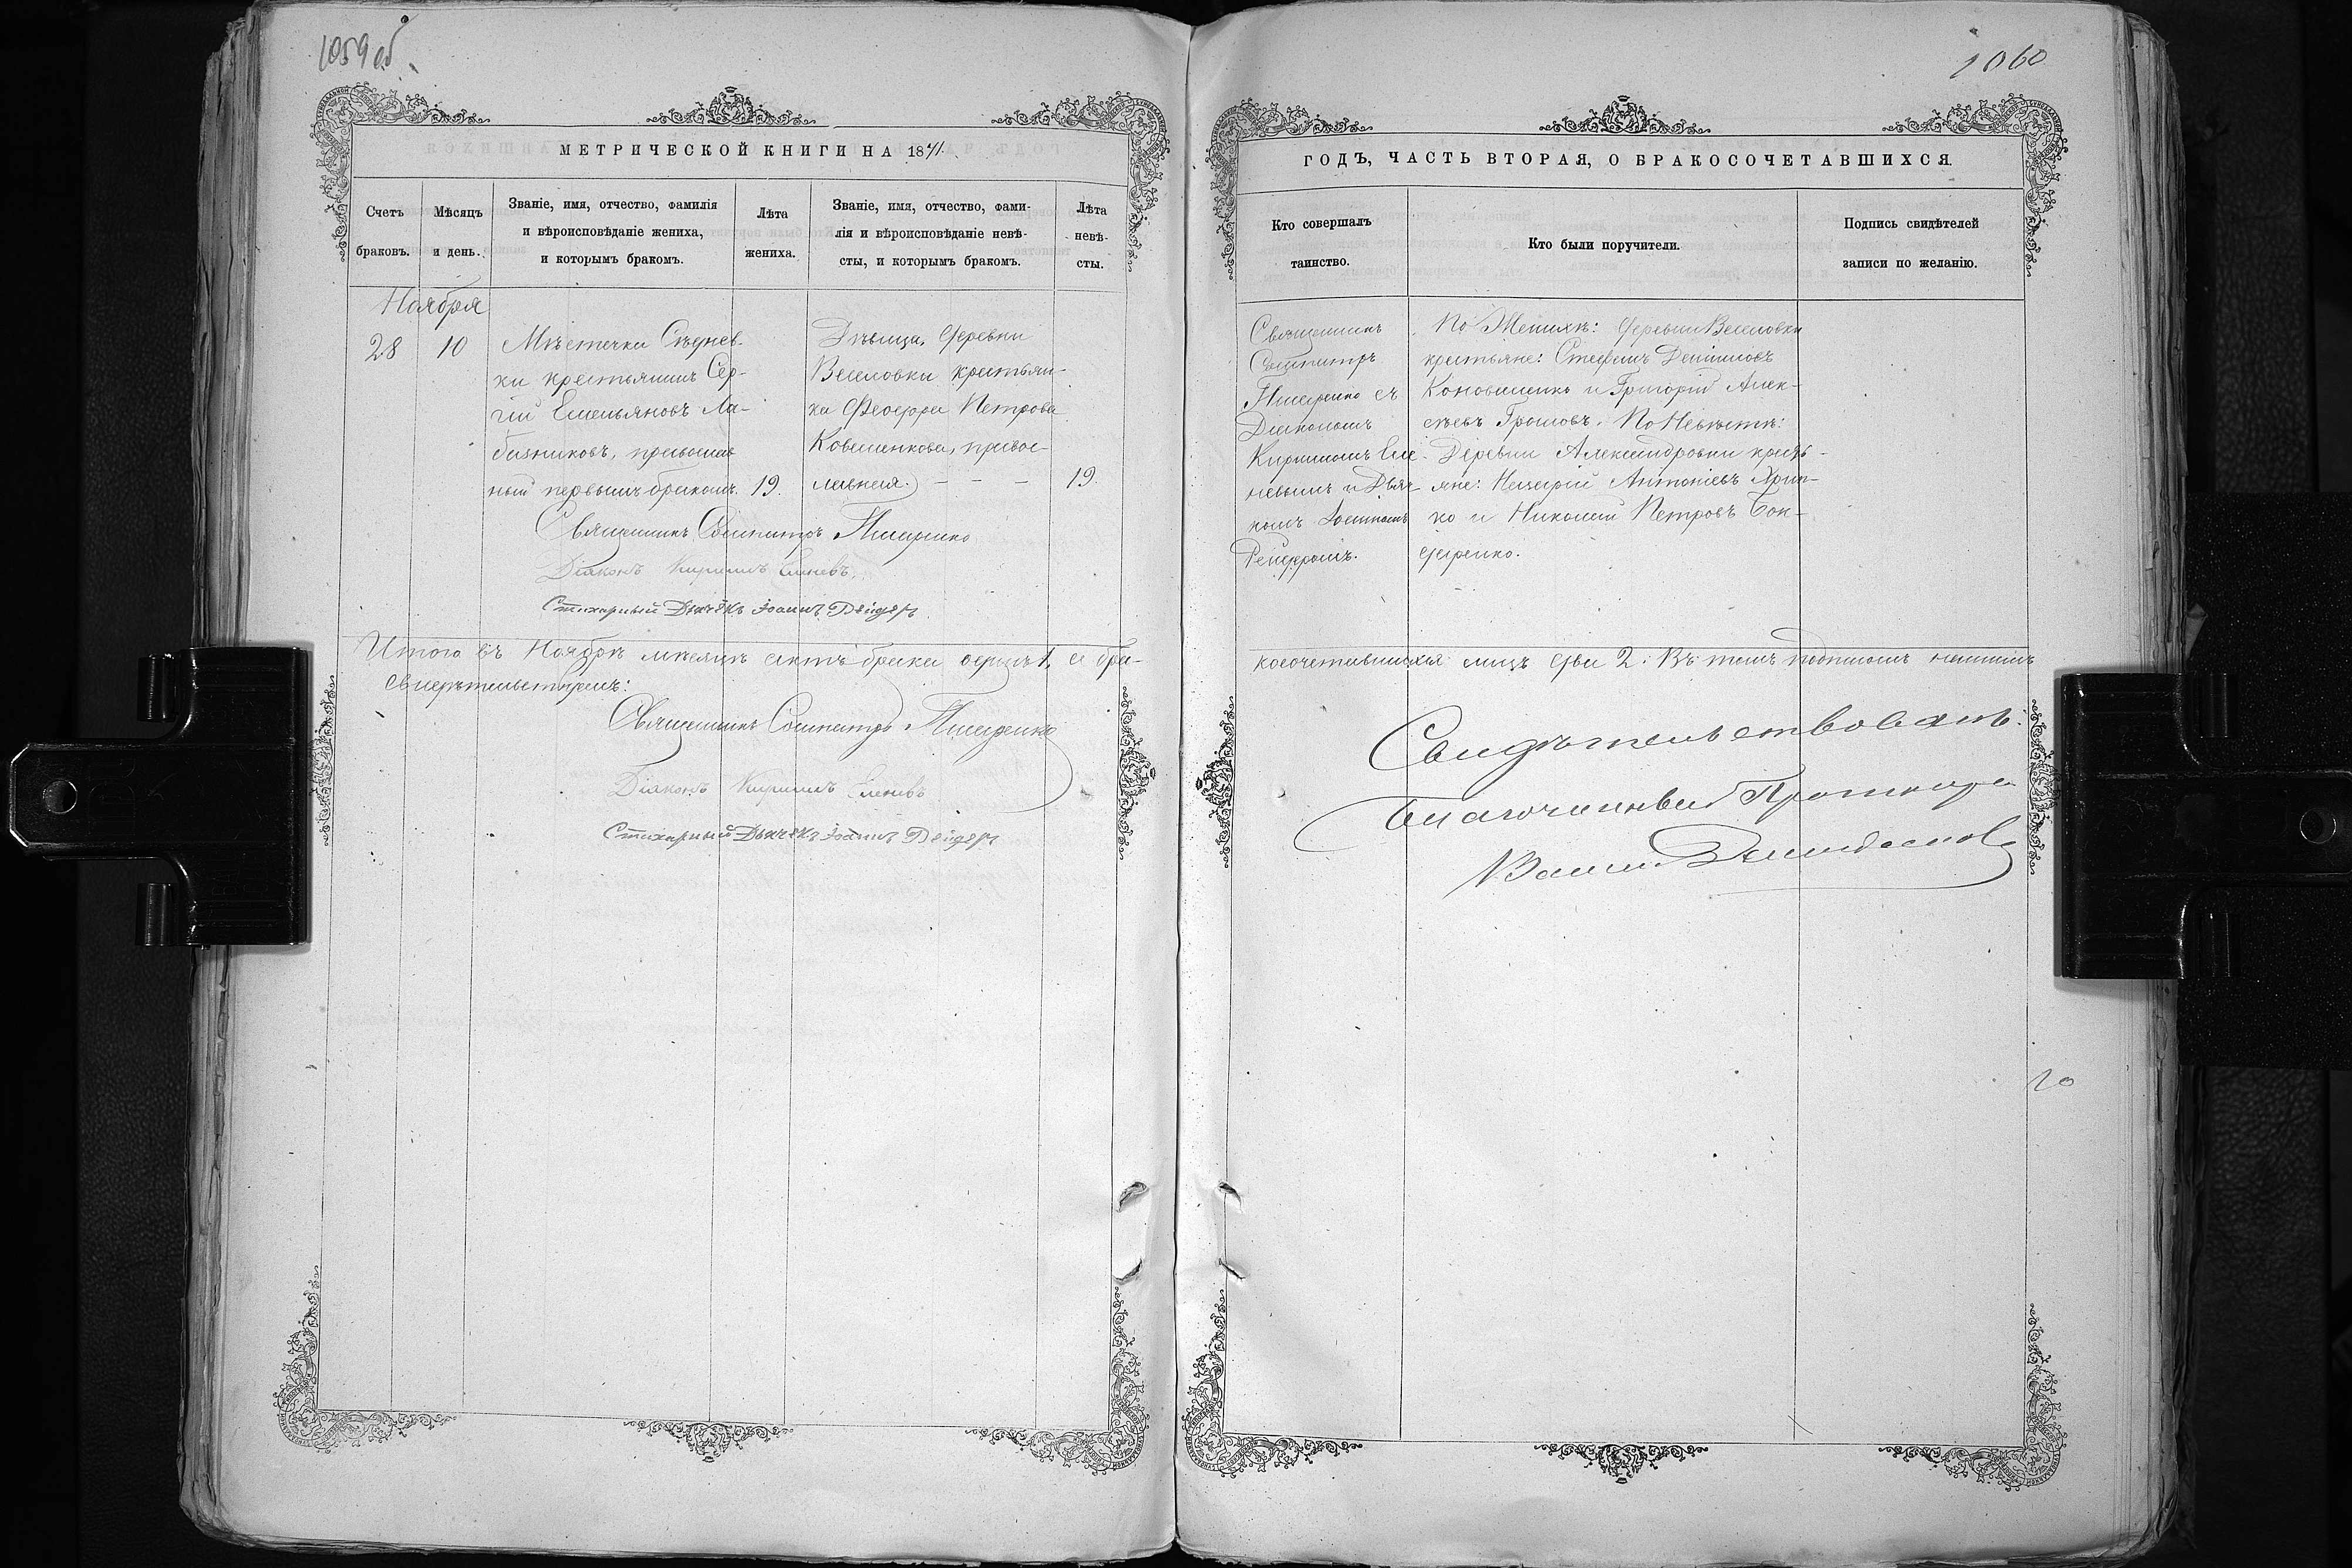 1059 об
МЕТРИЧЕСКОЙ КНИГИ НА 1871
Счетъ браковъ.
Мѣсяцъ и день.
Званіе, имя, отчество, фамилія
и вѣроисповѣданіе жениха,
и которымъ бракомъ.
Лѣта
жениха.
Званіе, имя, отчество, фами-
лія и вѣроисповѣданіе невѣ-
сты, и которымъ бракомъ.
Лѣта
невѣ-
сты.
Ноября
28
10
Мѣстечка Сѣднев-
ки крестьянинъ Сер-
гій Емельяновъ Ла-
базниковъ, православ
ный первымъ бракомъ.
19.
Дѣвица, деревни
Веселовки крестьян-
ка Ѳеодора Петрова
Ковшенкова, правос-
лавная.
19.
Священникъ Сосипатръ
Діаконъ Кирилъ Еленевъ.
Стихарный Дьячекъ Іоаннъ Рейдеръ.
Итого въ Ноябрѣ мѣсяцѣ актъ брака одинъ 1, а бра-
свидѣтельствуемъ:
Священникъ Сосипатръ
Діаконъ Кирилъ Еленевъ
Стихарный Дьячекъ Іоаннъ Рейдеръ
1060
ГОДЪ, ЧАСТЬ ВТОРАЯ, О БРАКОСОЧЕТАВШИХСЯ.
Кто совершалъ
таинство.
Кто были поручители.
Подпись свидѣтелей
записи по желанію.
Священникъ
Сосипатръ
съ
Діакономъ
Кирилломъ Еле-
невымъ и Дьяч-
комъ Іоанномъ
Рейдеромъ.
По Женихѣ: деревни Веселовки
крестьяне: Стефанъ Даниловъ
и Григорій Алек-
сѣевъ Громовъ. По Невѣстѣ:
Деревни Александровки крестъ-
яне: Назарій Антоніевъ Хрип-
ко и Николай Петровъ Бон-
даренко.
косочетавшихся лицъ два 2. Въ томъ подписомъ нашимъ
Свидѣтельствовалъ:
Благочинный Протоіерей
20